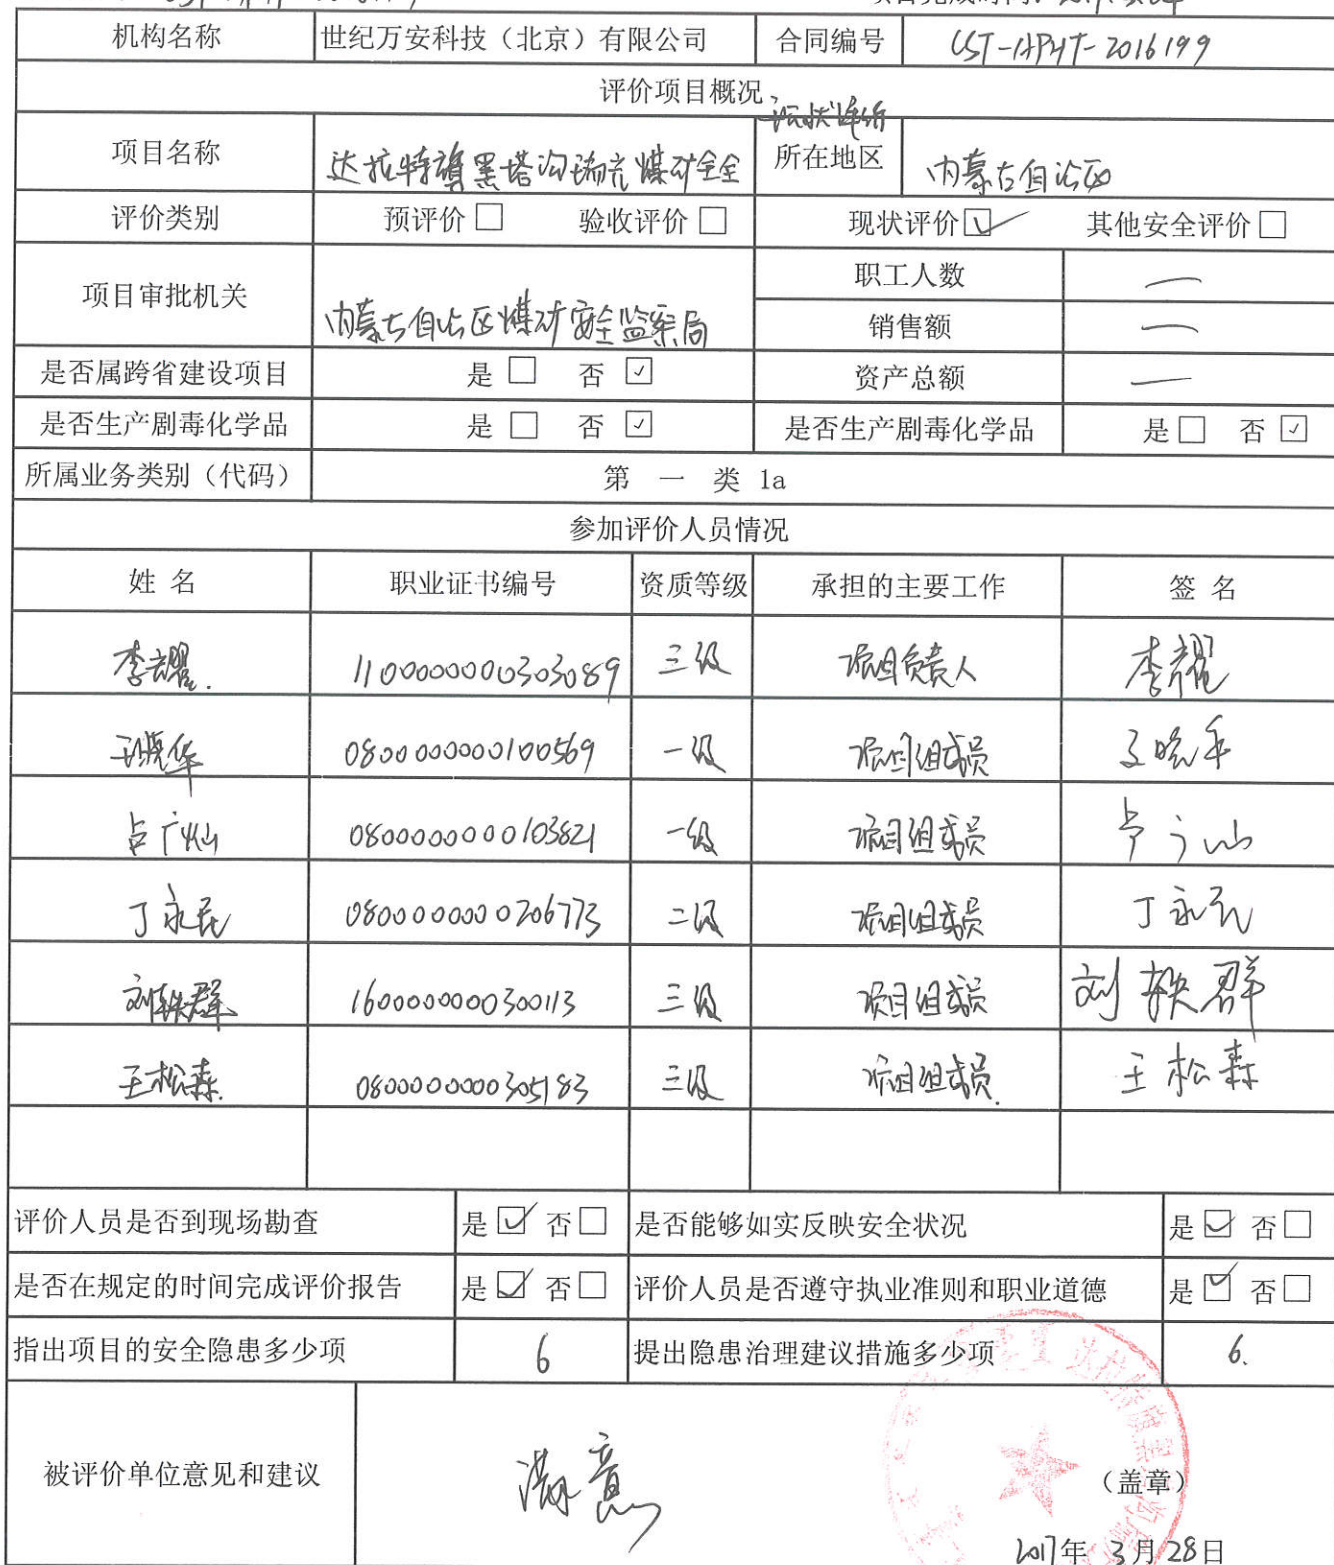 机构名称 世纪万安科技（北京）有限公司 合同编号 CST-APHT-2016199
评价项目概况
现状评价
项目名称 达拉特旗黑塔沟瑞光煤矿安全 所在地区 内蒙古自治区
评价类别 预评价□ 验收评价□ 现状评价☑ 其他安全评价□
项目审批机关 内蒙古自治区煤矿安全监察局 职工人数 —
销售额 —
是否属跨省建设项目 是□ 否☑ 资产总额 —
是否生产剧毒化学品 是□ 否☑ 是否生产剧毒化学品 是□ 否☑
所属业务类别（代码） 第 一 类 1a
参加评价人员情况
姓 名 职业证书编号 资质等级 承担的主要工作 签 名
李耀 1100000000303089 三级 项目负责人 李耀
王晓华 0800000000100569 一级 项目组成员 王晓华
占广灿 0800000000103821 一级 项目组成员
丁永民 0800000000206773 二级 项目组成员 丁永民
刘轶群 1600000000300113 三级 项目组成员 刘轶群
王松森 0800000000305183 三级 项目组成员 王松森
评价人员是否到现场勘查 是☑ 否□ 是否能够如实反映安全状况 是☑ 否□
是否在规定的时间完成评价报告 是☑ 否□ 评价人员是否遵守执业准则和职业道德 是☑ 否□
指出项目的安全隐患多少项 6 提出隐患治理建议措施多少项 6.
被评价单位意见和建议 满意 （盖章）
2017年 3月28日